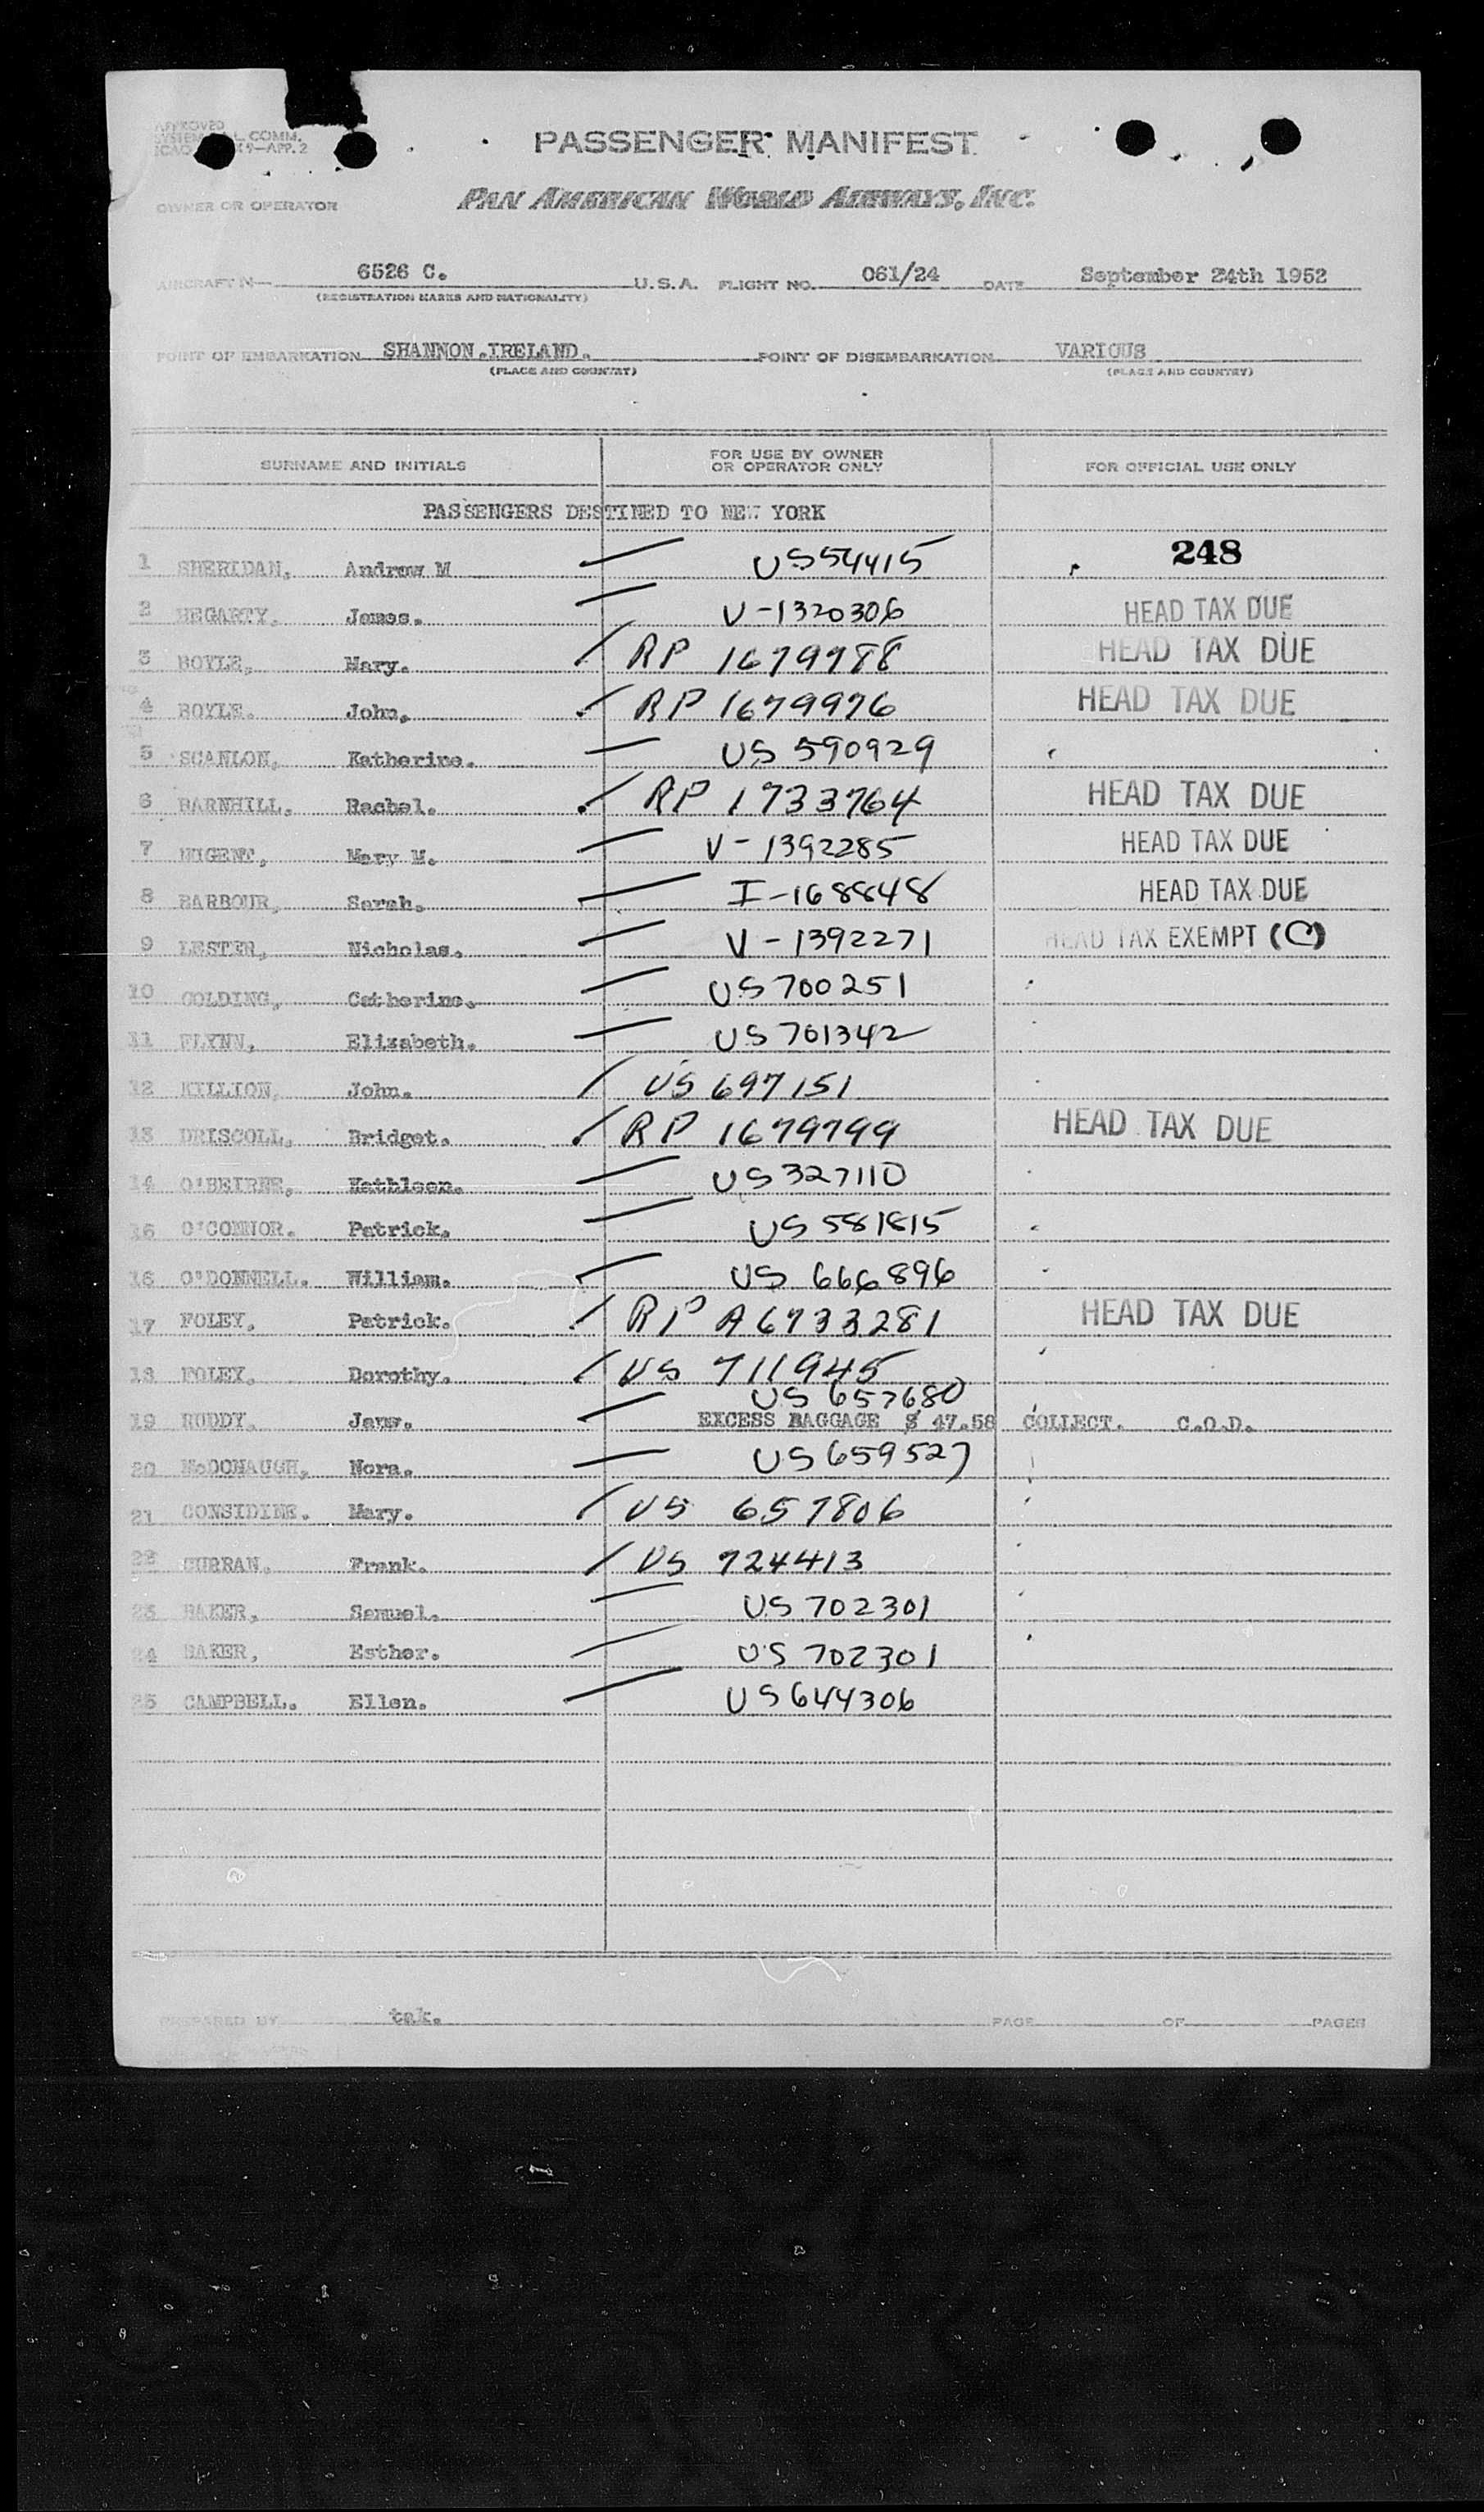 APPROVED
L. COMM.
9—APP. 2
PASSENGER MANIFEST
OWNER OR OPERATOR PAN AMERICAN WORLD AIRWAYS, INC.
AIRCRAFT N— 6526 C. U.S.A. FLIGHT NO. 061/24 DATE September 24th 1952
(REGISTRATION MARKS AND NATIONALITY)
POINT OF EMBARKATION SHANNON.IRELAND. POINT OF DISEMBARKATION VARIOUS
(PLACE AND COUNTRY) (PLACE AND COUNTRY)
SURNAME AND INITIALS FOR USE BY OWNER OR OPERATOR ONLY FOR OFFICIAL USE ONLY
PASSENGERS DESTINED TO NEW YORK
1 SHERIDAN, Andrew M US54415 248
2 HEGARTY, James. V-1320306 HEAD TAX DUE
3 BOYLE, Mary. RP 1679788 HEAD TAX DUE
4 BOYLE. John. RP 1679976 HEAD TAX DUE
5 SCANLON, Katherine. US 590929
6 BARNHILL. Rachel. RP 1733764 HEAD TAX DUE
7 NUGENT, Mary M. V-1392285 HEAD TAX DUE
8 BARBOUR, Sarah. I-168848 HEAD TAX DUE
9 LESTER, Nicholas. V-1392271 HEAD TAX EXEMPT (C)
10 GOLDING, Catherine. US700251
11 FLYNN, Elizabeth. US 701342
12 KILLION, John. US 697151
13 DRISCOLL, Bridget. RP 1679799 HEAD TAX DUE
14 O'BEIRNE, Kathleen. US327110
15 O'CONNOR. Patrick. US 581815
16 O'DONNELL. William. US 666896
17 FOLEY. Patrick. RP A6733281 HEAD TAX DUE
18 FOLEY. Dorothy. US 711945
19 RUDDY. US 657680
EXCESS BAGGAGE $ 47.58 COLLECT. C.O.D.
20 McDONAUGH, Nora. US659527
21 CONSIDINE. Mary. US 657806
22 CURRAN. Frank. US 724413
23 BAKER, Samuel. US 702301
24 BAKER, Esther. US 702301
25 CAMPBELL. Ellen. US644306
PREPARED BY tak. PAGE OF PAGES